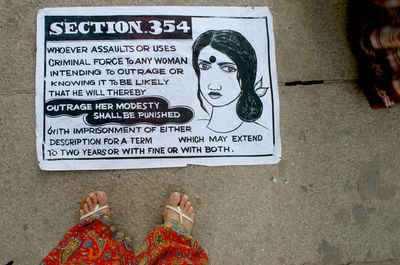 SECTION.354
WHOEVER ASSAULTS OR USES
CRIMINAL FORCE TO ANY WOMAN
INTENDING TO OUTRAGE OR
KNOWING IT TO BE LIKELY
THAT HE WILL THEREBY
OUTRAGE HER MODESTY
SHALL BE PUNISHED
WITH IMPRISONMENT OF EITHER
DESCRIPTION FOR A TERM WHICH MAY EXTEND
TO TWO YEARS OR WITH FINE OR WITH BOTH.